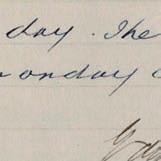 day. The
onday